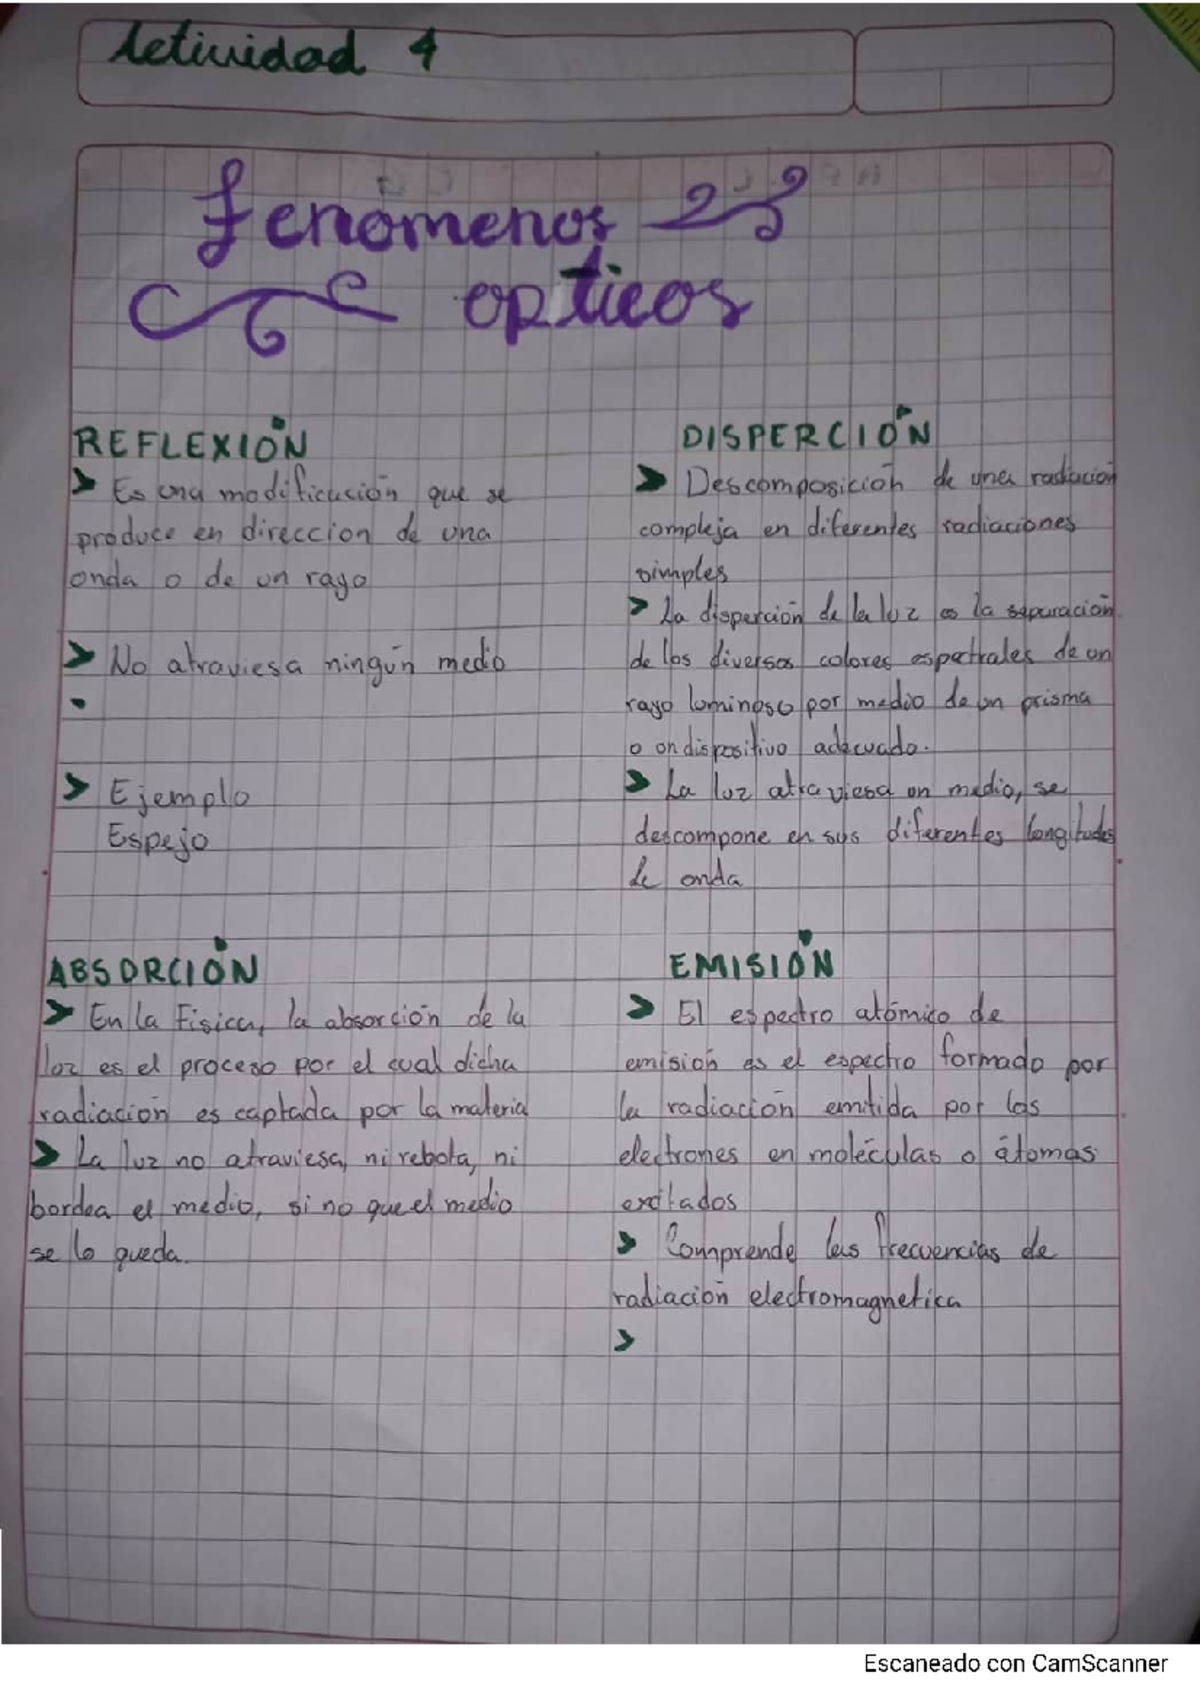 Actividad 4
Fenomenos
opticos
REFLEXIÓN
> Es una modificación que se
produce en direccion de una
onda o de un rayo
> No atraviesa ningún medio
> Ejemplo
Espejo
DISPERCIÓN
> Descomposición de una radiación
compleja en diferentes radiaciones
simples
> La disperción de la luz es la separación
de los diversos colores espectrales de un
rayo luminoso por medio de un prisma
o un dispositivo adecuado.
> La luz atraviesa un medio, se
descompone en sus diferentes longitudes
de onda
ABSORCIÓN
> En la Física, la absorción de la
luz es el proceso por el cual dicha
radiación es captada por la materia
> La luz no atraviesa, ni rebota, ni
bordea el medio, si no que el medio
se lo queda.
EMISIÓN
> El espectro atómico de
emisión es el espectro formado por
la radiación emitida por los
electrones en moléculas o átomos
exitados
> Comprende las frecuencias de
radiación electromagnetica
>
Escaneado con CamScanner